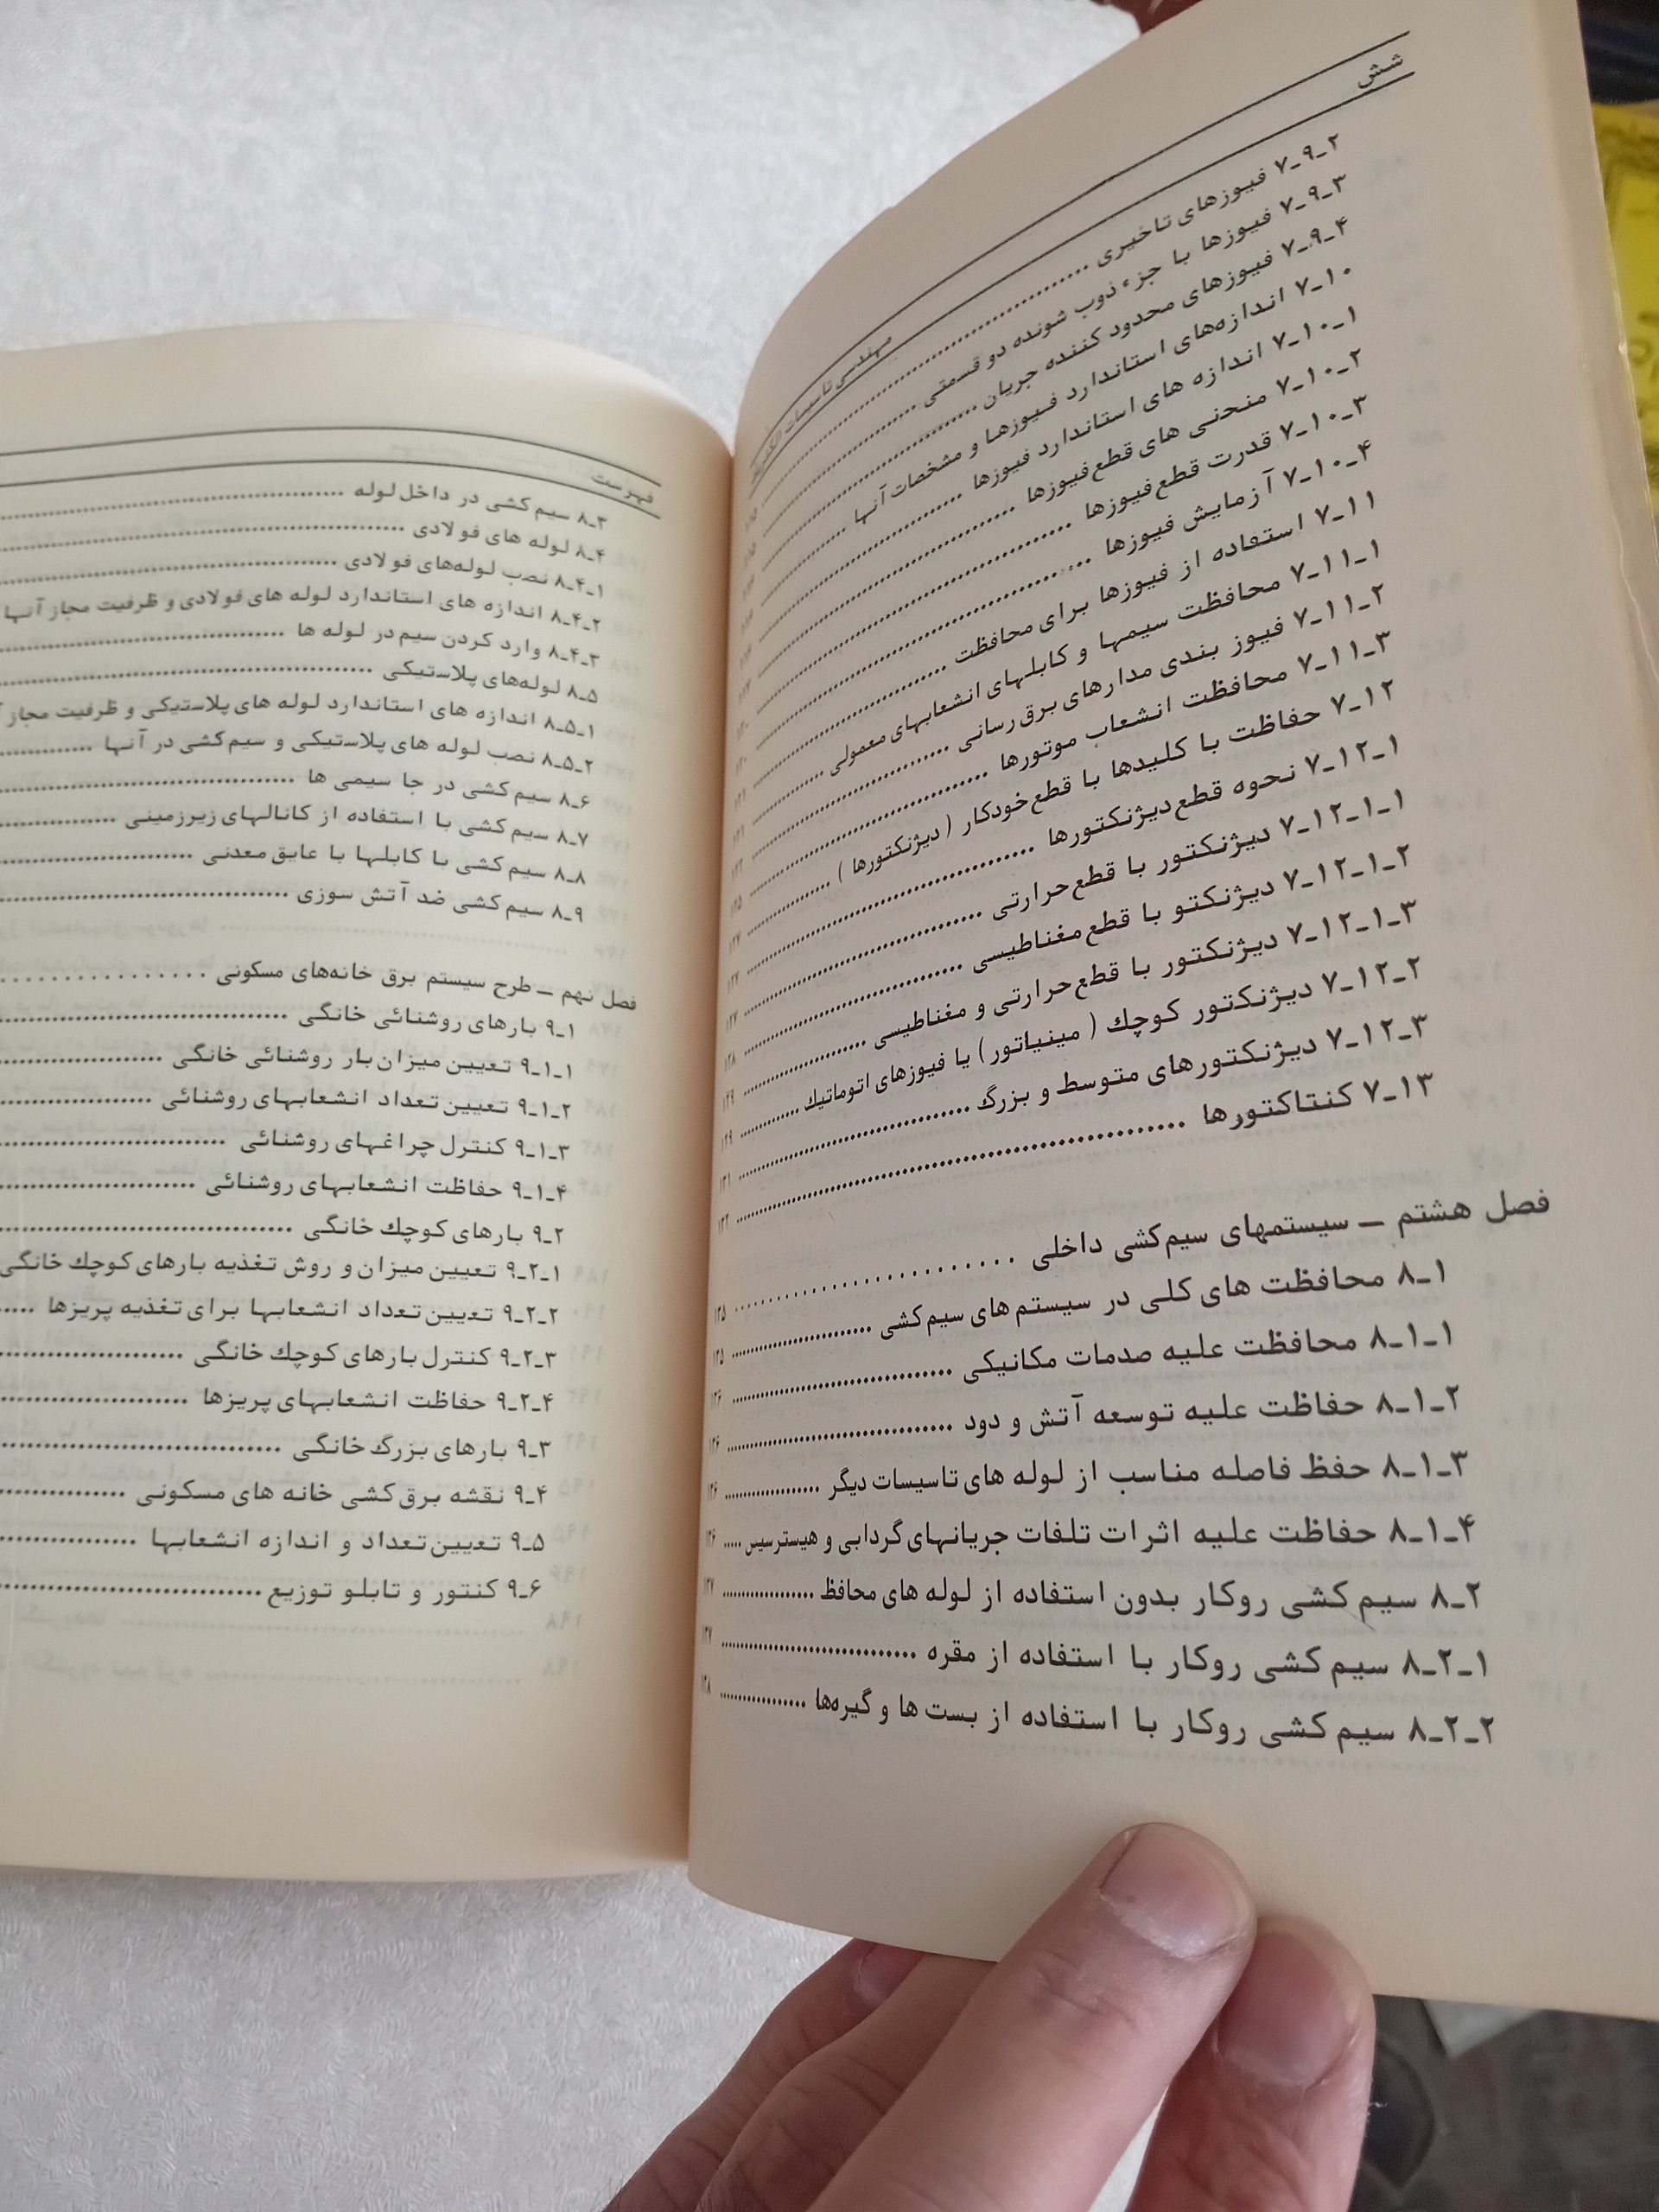 شش
مهندسی تاسیسات
۷ـ۹ـ۲ فیوزهای تاخیری
۷ـ۹ـ۳ فیوزها با جزء ذوب شونده دو قسمتی
۷ـ۹ـ۴ فیوزهای محدود کننده جریان
۷ـ۱۰ اندازه‌های استاندارد فیوزها و مشخصات آنها
۷ـ۱۰ـ۱ اندازه های استاندارد فیوزها
۷ـ۱۰ـ۲ منحنی های قطع فیوزها
۷ـ۱۰ـ۳ قدرت قطع فیوزها
۷ـ۱۰ـ۴ آزمایش فیوزها
۷ـ۱۱ استفاده از فیوزها برای محافظت
۷ـ۱۱ـ۱ محافظت سیمها و کابلهای انشعابهای معمولی
۷ـ۱۱ـ۲ فیوز بندی مدارهای برق رسانی
۷ـ۱۱ـ۳ محافظت انشعاب موتورها
۷ـ۱۲ حفاظت با کلیدها با قطع خودکار ( دیژنکتورها )
۷ـ۱۲ـ۱ نحوه قطع دیژنکتورها
۷ـ۱۲ـ۱ـ۱ دیژنکتور با قطع حرارتی
۷ـ۱۲ـ۱ـ۲ دیژنکتو با قطع مغناطیسی
۷ـ۱۲ـ۱ـ۳ دیژنکتور با قطع حرارتی و مغناطیسی
۷ـ۱۲ـ۲ دیژنکتور کوچك ( مینیاتور ) یا فیوزهای اتوماتیك
۷ـ۱۲ـ۳ دیژنکتورهای متوسط و بزرگ
۷ـ۱۳ کنتاکتورها
فصل هشتم ــ سیستمهای سیم‌کشی داخلی
۸ـ۱ محافظت های کلی در سیستم های سیم‌کشی
۸ـ۱ـ۱ محافظت علیه صدمات مکانیکی
۸ـ۱ـ۲ حفاظت علیه توسعه آتش و دود
۸ـ۱ـ۳ حفظ فاصله مناسب از لوله های تاسیسات دیگر
۸ـ۱ـ۴ حفاظت علیه اثرات تلفات جریانهای گردابی و هیسترسیس
۸ـ۲ سیم کشی روکار بدون استفاده از لوله های محافظ
۸ـ۲ـ۱ سیم کشی روکار با استفاده از مقره
۸ـ۲ـ۲ سیم کشی روکار با استفاده از بست ها و گیره‌ها
فهرست
۸ـ۳ سیم کشی در داخل لوله
۸ـ۴ لوله های فولادی
۸ـ۴ـ۱ نصب لوله‌های فولادی
۸ـ۴ـ۲ اندازه های استاندارد لوله های فولادی و ظرفیت مجاز آنها
۸ـ۴ـ۳ وارد کردن سیم در لوله ها
۸ـ۵ لوله‌های پلاستیکی
۸ـ۵ـ۱ اندازه های استاندارد لوله های پلاستیکی و ظرفیت مجاز
۸ـ۵ـ۲ نصب لوله های پلاستیکی و سیم‌کشی در آنها
۸ـ۶ سیم کشی در جا سیمی ها
۸ـ۷ سیم کشی با استفاده از کانالهای زیرزمینی
۸ـ۸ سیم کشی با کابلها با عایق معدنی
۸ـ۹ سیم کشی ضد آتش سوزی
فصل نهم ــ طرح سیستم برق خانه‌های مسکونی
۹ـ۱ بارهای روشنائی خانگی
۹ـ۱ـ۱ تعیین میزان بار روشنائی خانگی
۹ـ۱ـ۲ تعیین تعداد انشعابهای روشنائی
۹ـ۱ـ۳ کنترل چراغهای روشنائی
۹ـ۱ـ۴ حفاظت انشعابهای روشنائی
۹ـ۲ بارهای کوچك خانگی
۹ـ۲ـ۱ تعیین میزان و روش تغذیه بارهای کوچك خانگی
۹ـ۲ـ۲ تعیین تعداد انشعابها برای تغذیه پریزها
۹ـ۲ـ۳ کنترل بارهای کوچك خانگی
۹ـ۲ـ۴ حفاظت انشعابهای پریزها
۹ـ۳ بارهای بزرگ خانگی
۹ـ۴ نقشه برق کشی خانه های مسکونی
۹ـ۵ تعیین تعداد و اندازه انشعابها
۹ـ۶ کنتور و تابلو توزیع